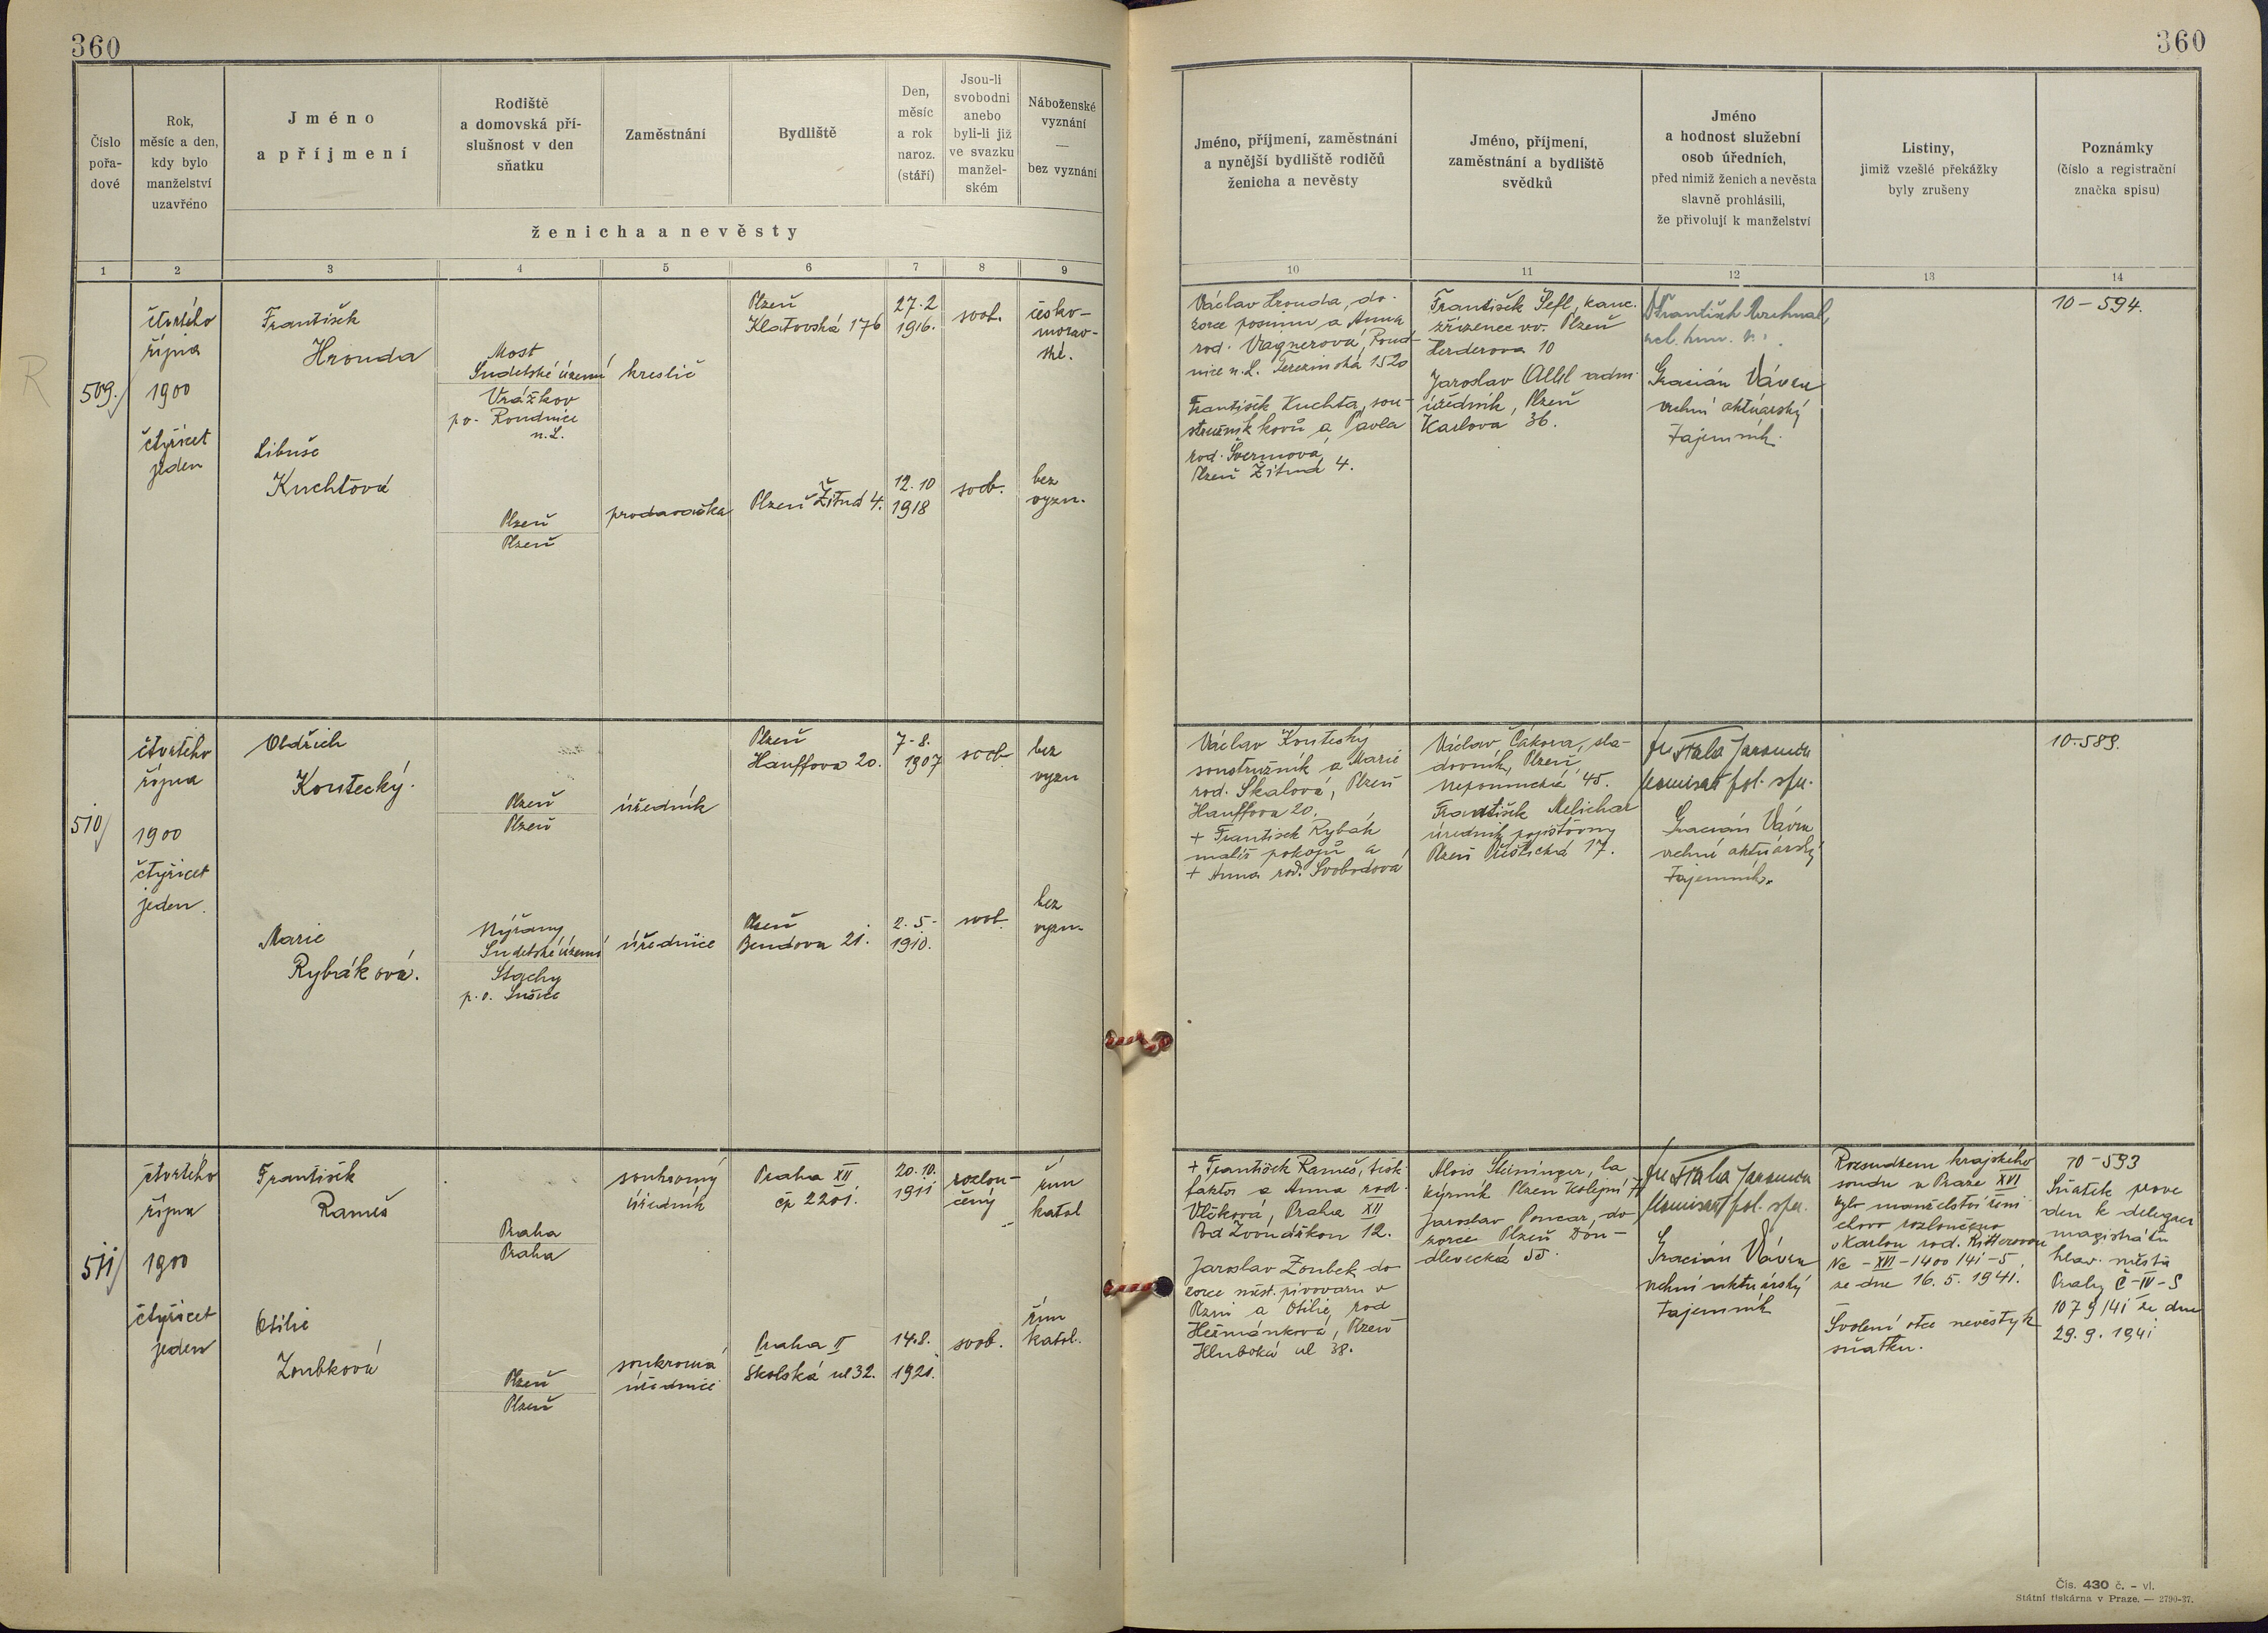 360
360
Číslo
pořa-
dové
Rok,
měsíc a den,
kdy bylo
manželství
uzavřéno
Jméno
a příjmení
Rodiště
a domovská pří-
slušnost v den
sňatku
Zaměstnání
Bydliště
Den,
měsíc
a rok
naroz.
(stáří)
Jsou-li
svobodni
anebo
byli-li již
ve svazku
manžel-
ském
Náboženské
vyznání
—
bez vyznání
ženicha a nevěsty
Jméno, příjmení, zaměstnání
a nynější bydliště rodičů
ženicha a nevěsty
Jméno, příjmení,
zaměstnání a bydliště
svědků
Jméno
a hodnost služební
osob úředních,
před nimiž ženich a nevěsta
slavně prohlásili,
že přivolují k manželství
Listiny,
jimiž vzešlé překážky
byly zrušeny
Poznámky
(číslo a registrační
značka spisu)
1 2 3 4 5 6 7 8 9 10 11 12 13 14
R
509.
čtvrtého
října
1900
čtyřicet
jeden
František
Hronda
Most
Sudetské území
Vrážkov
po. Roudnice
n.L.
kreslič
Plzeň
Klatovská 176
27.2
1916.
svob.
česko-
morav-
ské.
Libuše
Kuchtová
Plzeň
Plzeň
prodavačka
Plzeň Žitná 4.
12.10
1918
svob.
bez
vyzn.
Václav Hronda, do-
zorce a Anna
rod. Vagnerová, Roud-
nice n.L. Terezínská 1520
František Kuchta, sou-
stružník kovů a Pavla
rod. Švermova,
Plzeň Žitná 4.
František Šefl, kanc.
zřízenec vv. Plzeň
Herderova 10
Jaroslav Altl adm.
úředník, Plzeň
Karlova 36.
Gracián Vávra
vrchní aktuárský
tajemník.
10-594.
510
čtvrtého
října
1900
čtyřicet
jeden.
Oldřich
Koutecký.
Plzeň
Plzeň
úředník
Plzeň
Hauffova 20.
7-8.
1907
svob
bez
vyzn
Marie
Rybáková.
Nýřany
Sudetské území
Stachy
p.o. Sušice
úřednice
Plzeň
Bendova 21.
2.5-
1910.
svob.
bez
vyzn.
Václav Koutecký
soustružník a Marie
rod. Skalová, Plzeň
Hauffova 20.
+ František Rybák
malíř pokojů a
+ Anna rod. Svobodová
Václav Čákora, sla-
dovník, Plzeň,
Nepomucká 45.
František Melichar
úředník pojišťovny
Plzeň Přeštická 17.
Gracián Vávra
vrchní aktuárský
tajemník.
10-589.
511
čtvrtého
října
1900
čtyřicet
jeden
František
Rameš
Praha
Praha
soukromý
úředník
Praha XII
čp 2201.
20.10.
1911
rozlou-
čený
řím
katol
Otilie
Zoubková
Plzeň
Plzeň
soukromá
úřednice
Praha II
Školská ul 32.
14.8.
1921.
svob.
řím
katol.
+ František Rameš, tisk.
faktor a Anna rod.
Vlčková, Praha XII
Pod Zvonářkou 12.
Jaroslav Zoubek do-
zorce měst. pivovaru v
Plzni a Otilie, rod
Heřmánková, Plzeň
Hluboká ul 38.
Alois Steininger, la-
kýrník Plzeň Kolejní 7
Jaroslav Poncar, do-
zorce Plzeň Dou-
dlevecká 55.
Gracián Vávra
vrchní aktuárský
tajemník
Rozsudkem krajského
soudu v Praze XVI
bylo manželství ženi
chovo rozloučeno
s Karlou rod. Ritterovou
Nc-XVI-1400/41-5,
ze dne 16. 5. 1941.
Svolení otce nevěsty k
sňatku.
10-593
Sňatek prove
den k delegaci
magistrátu
hlav. města
Prahy Č-IV-S
1079/41 ze dne
29. 9. 1941
Čís. 430 č. – vl.
Státní tiskárna v Praze. — 2790-37.